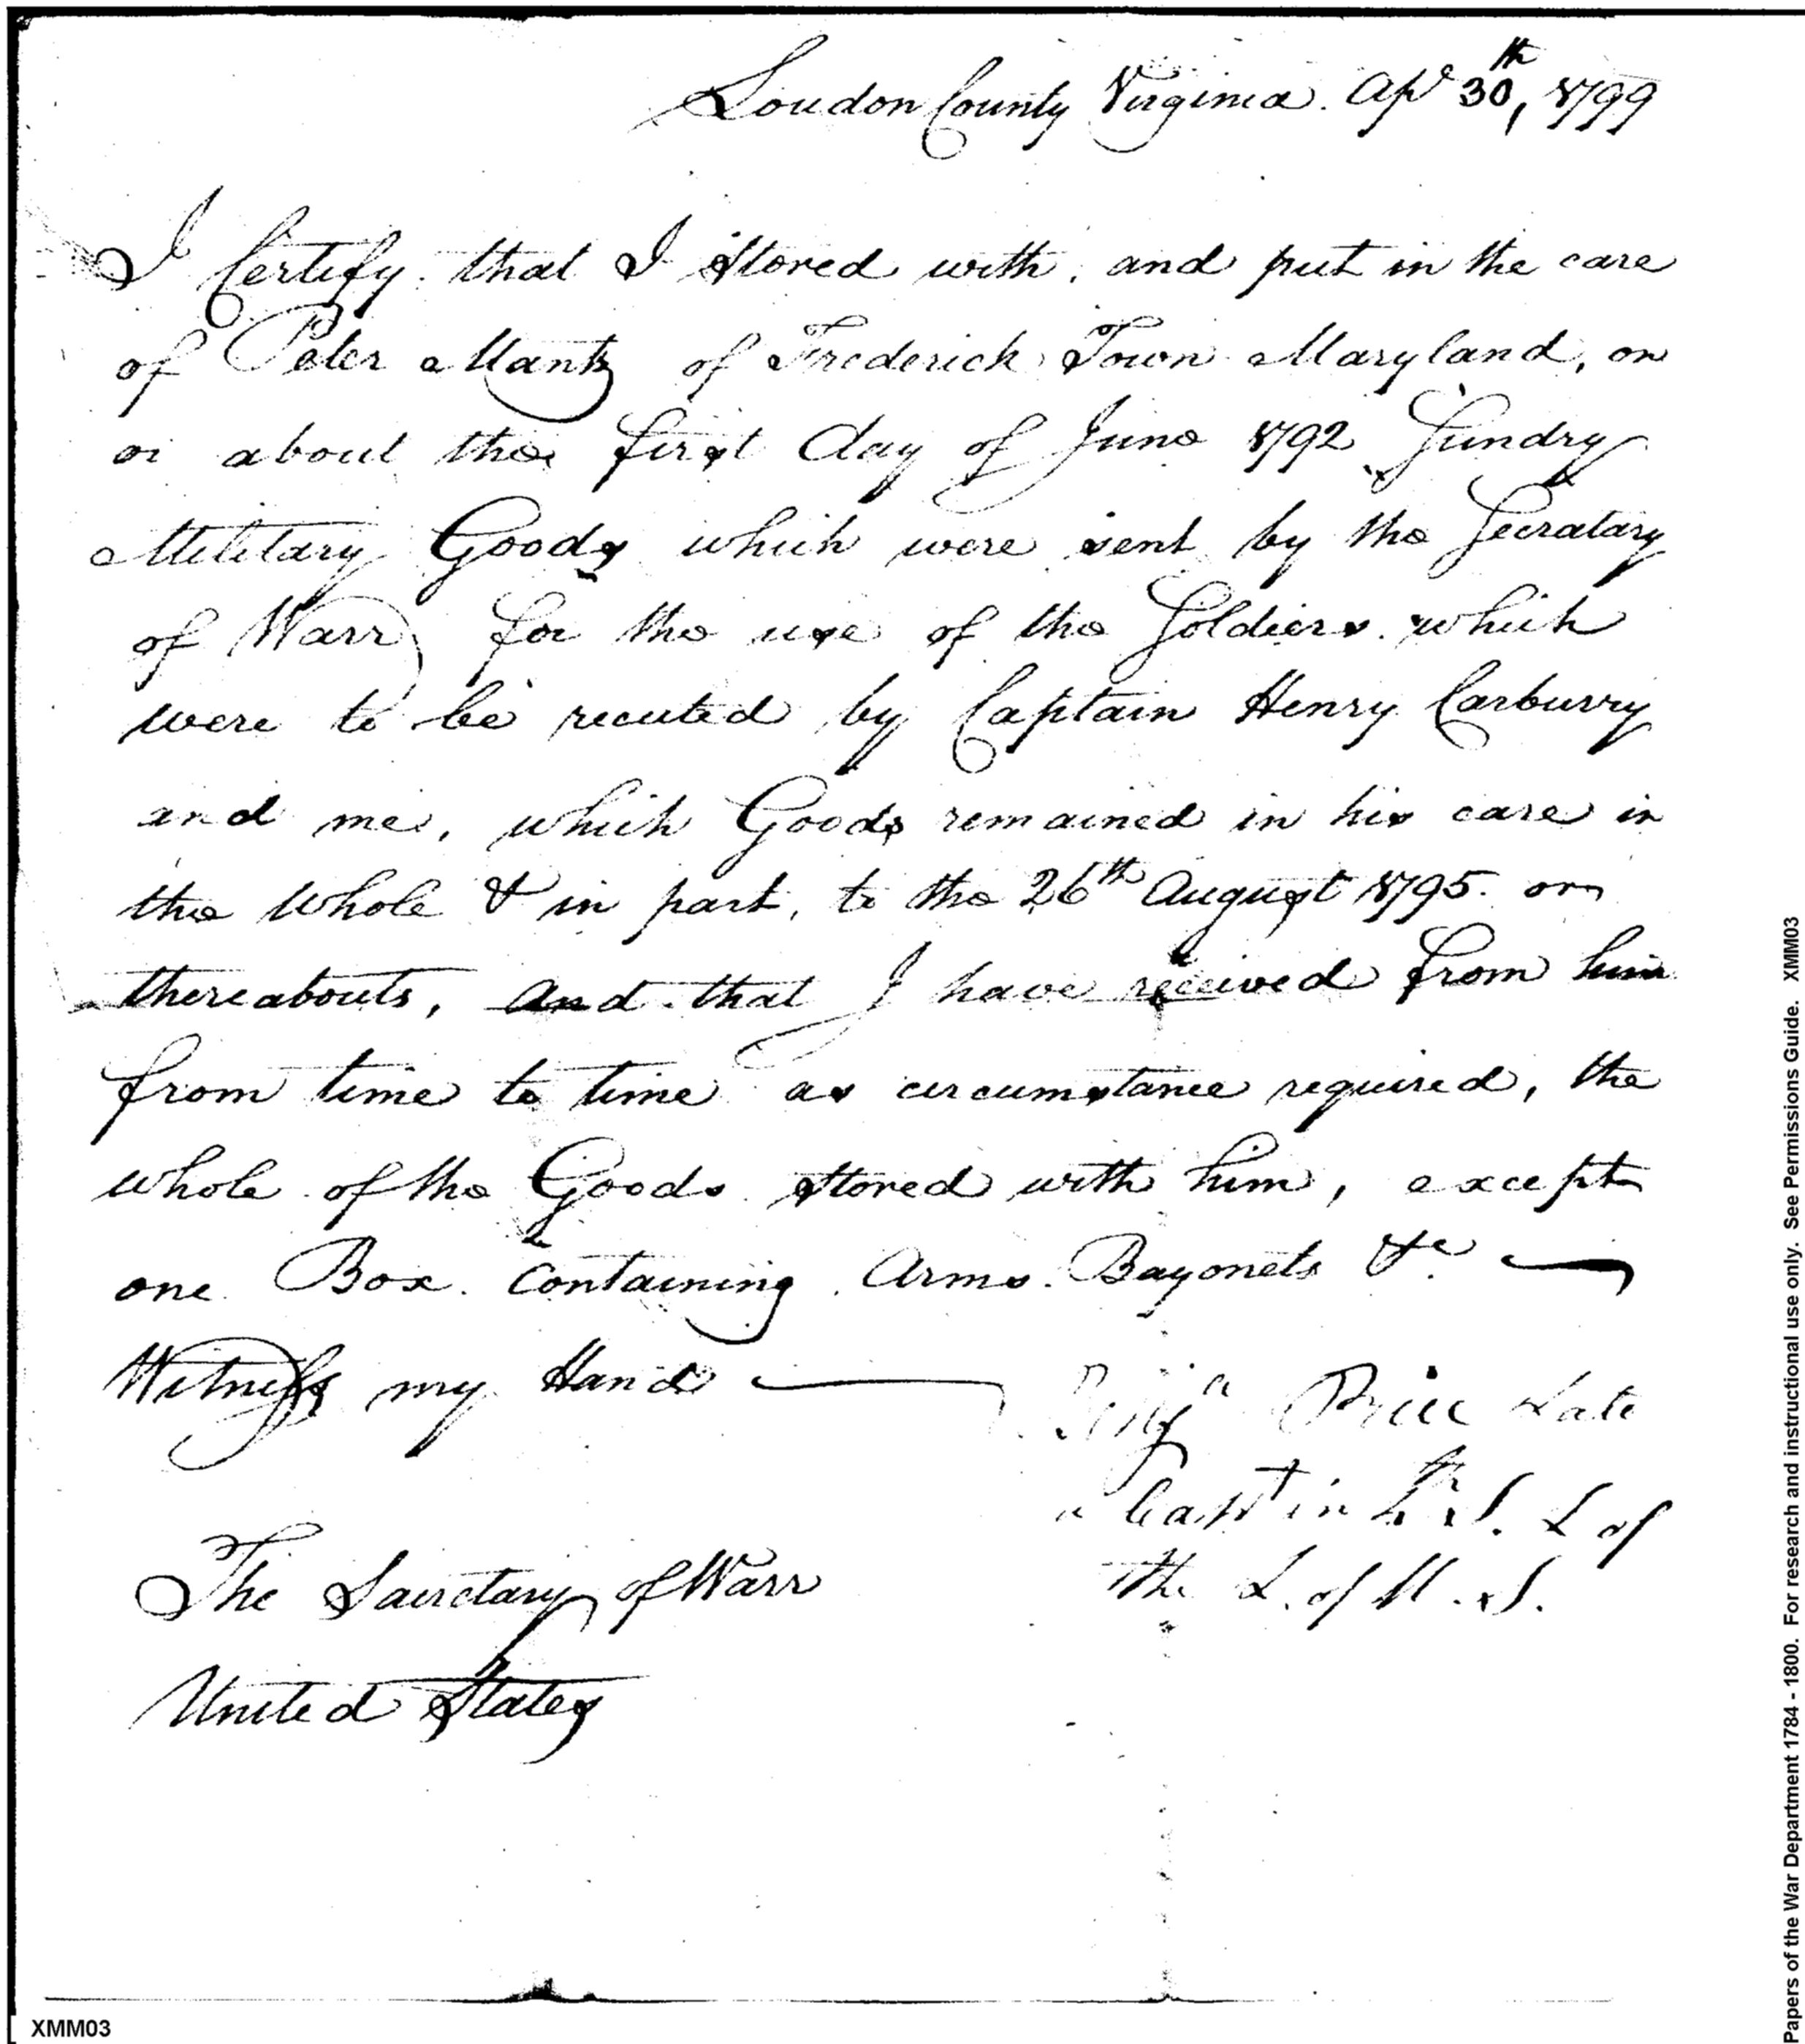 Loudon County Virginia. Apl 30th, 1799
I Certify that I stored with, and put in the care
of Peter Mantz of Frederick Town Maryland, on
or about the first day of June 1792 Sundry
Military Goods which were sent by the Secratary
of Warr for the use of the Soldiers which
were to be recuted by Captain Henry Carburry
and me, which Goods remained in his care in
the whole & in part, to the 26th August 1795. or
thereabouts, and that I have received from him
from time to time as circumstance required, the
whole of the Goods stored with him, except
one Box containing Arms. Bayonets &c
Witness my Hand
Benja Price Late
a Capt in S. L of
the L. of U. S.
The Sairctary of Warr
United States
XMM03
Papers of the War Department 1784 - 1800. For research and instructional use only. See Permissions Guide. XMM03